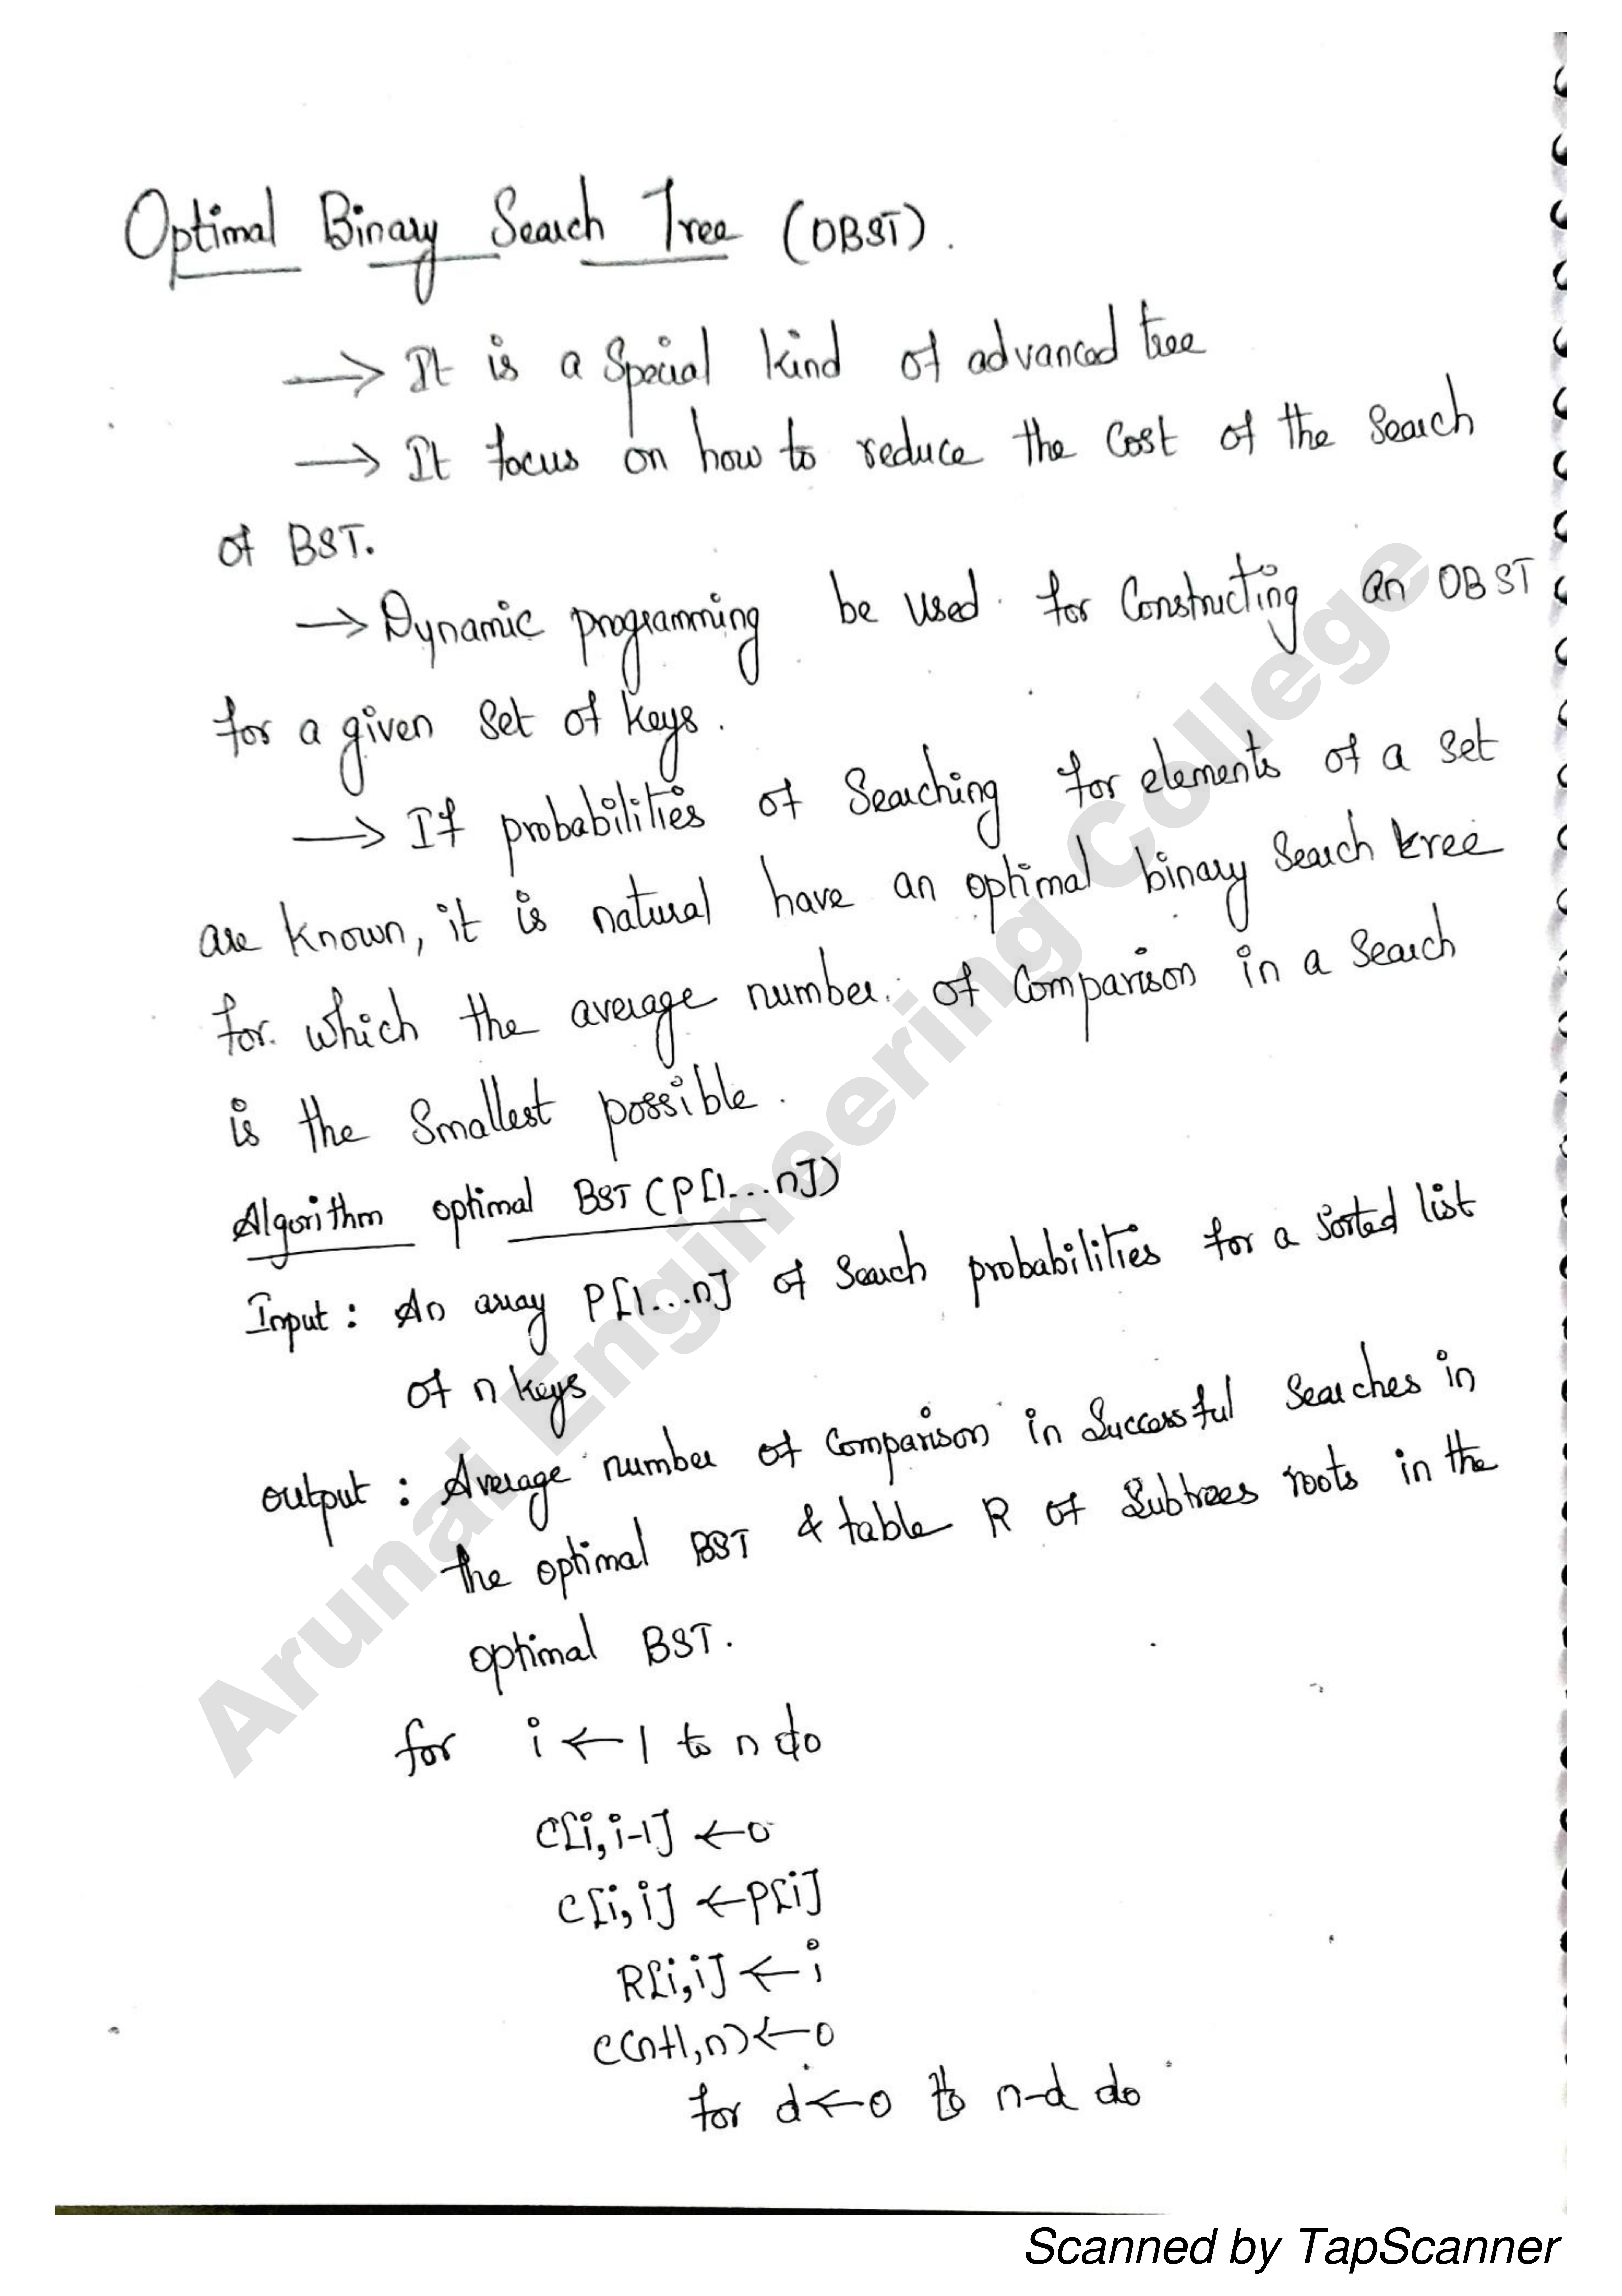 Optimal Binary Search Tree (OBST).
→ It is a Special kind of advanced tree
→ It focus on how to reduce the Cost of the Search
of BST.
→ Dynamic programming be used for Constructing an OBST
for a given Set of keys.
→ If probabilities of Searching for elements of a Set
are known, it is natural have an optimal binary Search tree
for which the average number of Comparison in a Search
is the Smallest possible.
Algorithm optimal BST (P[1...n])
Input : An array P[1...n] of Search probabilities for a Sorted list
of n keys
output : Average number of Comparison in Successful Searches in
the optimal BST & table R of Subtrees roots in the
optimal BST.
for i ← 1 to n do
C[i, i-1] ← 0
C[i, i] ← P[i]
R[i, i] ← i
C(n+1, n) ← 0
for d ← 0 to n-d do
Arunai Engineering College
Scanned by TapScanner